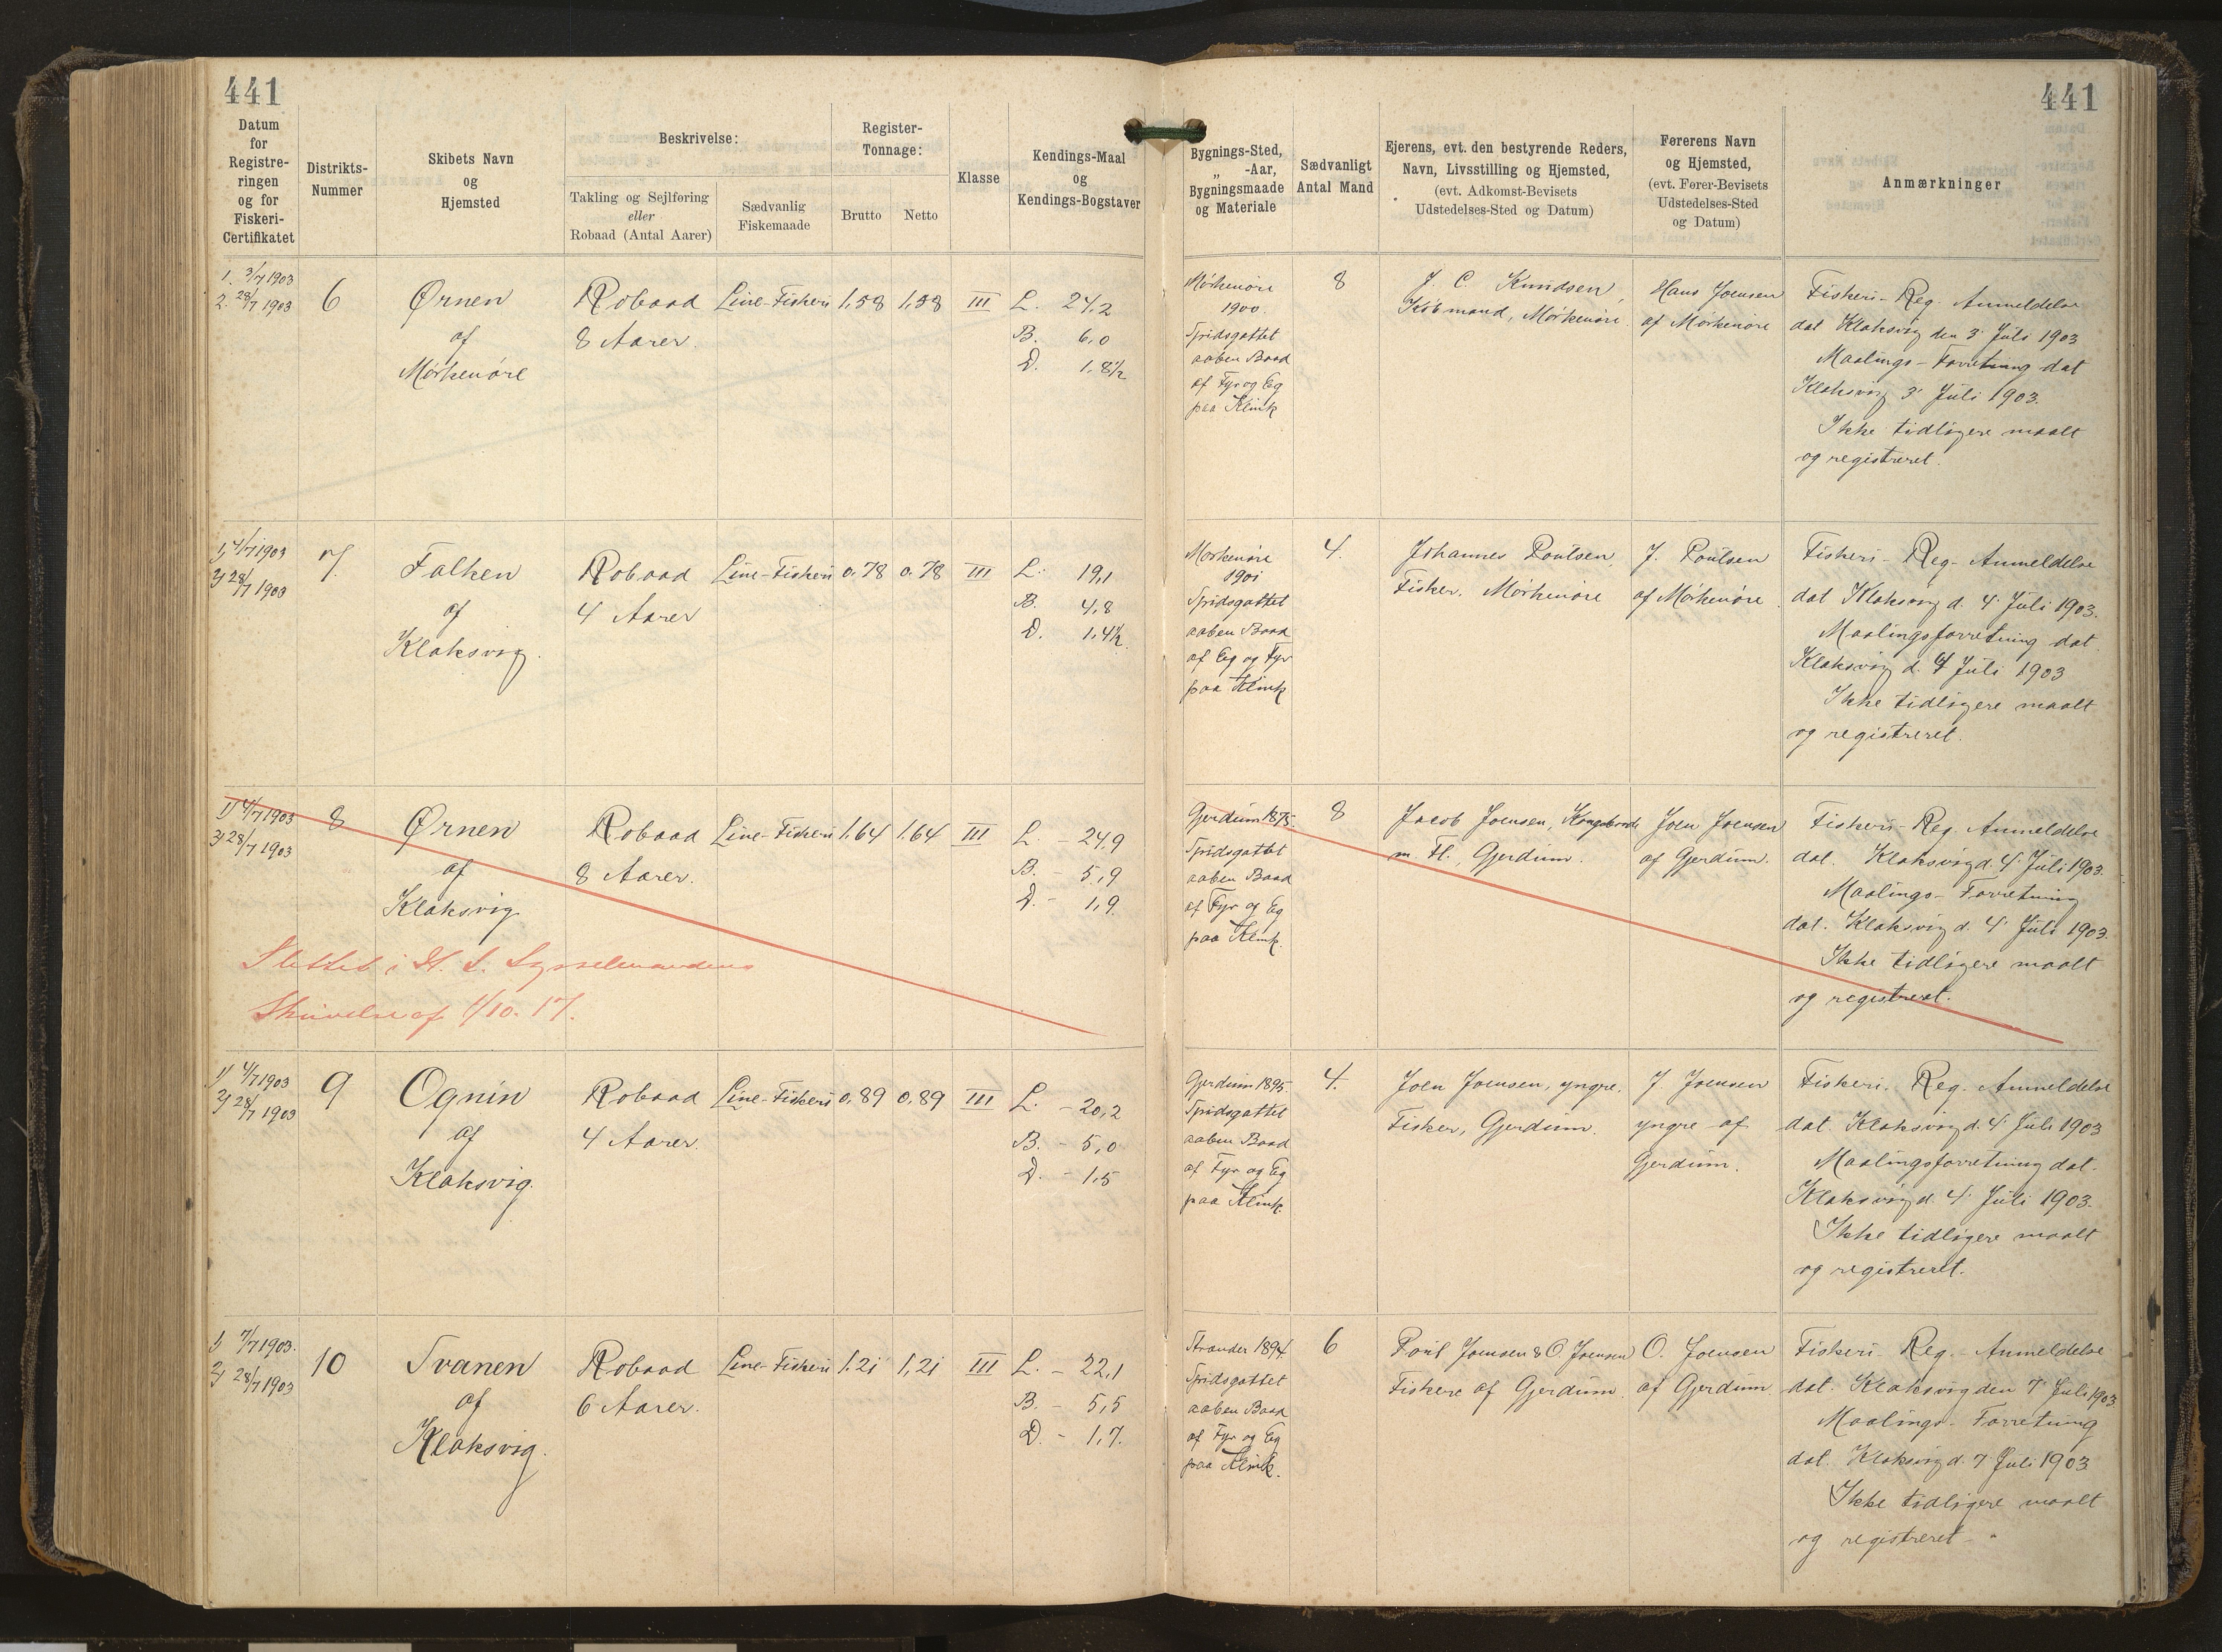 441
441
Datum
for
Registre-
ringen
og for
Fiskeri-
Certifikatet
Distrikts-
Nummer
Skibets Navn
og
Hjemsted
Beskrivelse:
Takling og Sejlføring
eller
Robaad (Antal Aarer)
Sædvanlig
Fiskemaade
Register-
Tonnage:
Brutto
Netto
Klasse
Kendings-Maal
og
Kendings-Bogstaver
Bygnings-Sted,
„ -Aar,
Bygningsmaade
og Materiale
Sædvanligt
Antal Mand
Ejerens, evt. den bestyrende Reders,
Navn, Livsstilling og Hjemsted,
(evt. Adkomst-Bevisets
Udstedelses-Sted og Datum)
Førerens Navn
og Hjemsted,
(evt. Fører-Bevisets
Udstedelses-Sted
og Datum)
Anmærkninger
1. 3/7 1903
2. 28/7 1903
6
Ørnen
af
Mørkenöre
Robaad
8 Aarer.
Line-Fiskeri
1,58
1,58
III
L. 24,2
B. 6,0
D. 1,8½
Mörkenöre
1900.
Spidsgattet
aaben Baad
af Fyr og Eg
paa Klink
8
J. C. Knudsen,
Köbmand, Mörkenöre.
Hans Joensen
af Mörkenöre
Fiskeri-Reg. Anmeldelse
dat Klaksvig den 3' Juli 1903
Maalings-Forretning dat
Klaksvig 3' Juli 1903.
Ikke tidligere maalt
og registreret.
1) 4/7 1903
2) 28/7 1903
7.
Falken
af
Klaksvig.
Robaad
4 Aarer
Line-Fiskeri
0,78
0,78
III
L. 19,1
B. 4,8
D. 1,4½.
Mörkenöre
1901
Spidsgattet
aaben Baad
af Eg og Fyr
paa Klink
4.
Johannes Poulsen,
Fisker, Mörkenöre
J. Poulsen
af Mörkenöre.
Fiskeri-Reg-Anmeldelse
dat Klaksvig d. 4' Juli 1903.
Maalingsforretning dat.
Klaksvig d. 4 Juli 1903
Ikke tidligere maalt
og registreret.
1) 4/7 1903
2) 28/7 1903
8
Ørnen
af
Klaksvig
Robaad
8 Aarer.
Line-Fiskeri
1,64
1,64
III
L. - 24,9
B. - 5,9
D. - 1,9.
Slettet i H. t. Sysselmandens
Skrivelse af 1/10. 17.
Gjerdum 1875.
Spidsgattet
aaben Baad
af Fyr og Eg
paa Klink.
8
Jacob Joensen, Kongsbonde
m. Fl., Gjerdum.
Joen Joensen
af Gjerdum.
Fiskeri-Reg. Anmeldelse
dat. Klaksvig d. 4' Juli 1903.
Maalings-Forretning
dat. Klaksvig d. 4' Juli 1903.
Ikke tidligere maalt
og registreret.
1) 4/7 1903
2) 28/7 1903
9
Ognin
af
Klaksvig.
Robaad
4 Aarer.
Line-Fiskeri
0,89
0,89
III
L. - 20,2
B. - 5,0
D. - 1,5
Gjerdum 1895.
Spidsgattet
aaben Baad
af Fyr og Eg
paa Klink.
4.
Joen Joensen, yngre.
Fisker, Gjerdum.
J. Joensen
yngre af
Gjerdum.
Fiskeri. Reg. Anmeldelse
dat. Klaksvig d. 4' Juli 1903
Maalingsforretning dat.
Klaksvig d. 4' Juli 1903.
Ikke tidligere maalt
og registreret.
1) 7/7 1903.
2) 28/7 1903
10
Svanen
af
Klaksvig.
Robaad
6 Aarer.
Line-Fiskeri
1,21
1,21
III
L. - 22,1
B. - 5,5
D. - 1,7.
Strander 1894.
Spidsgattet
aaben Baad
af Fyr og Eg
paa Klink.
6
Poul Joensen & O Joensen
Fiskere af Gjerdum.
O. Joensen
af Gjerdum
Fiskeri-Reg.-Anmeldelse
dat. Klaksvig den 7' Juli 1903
Maalings-Forretning
dat. Klaksvig d. 7 Juli 1903
Ikke tidligere maalt
og registreret-